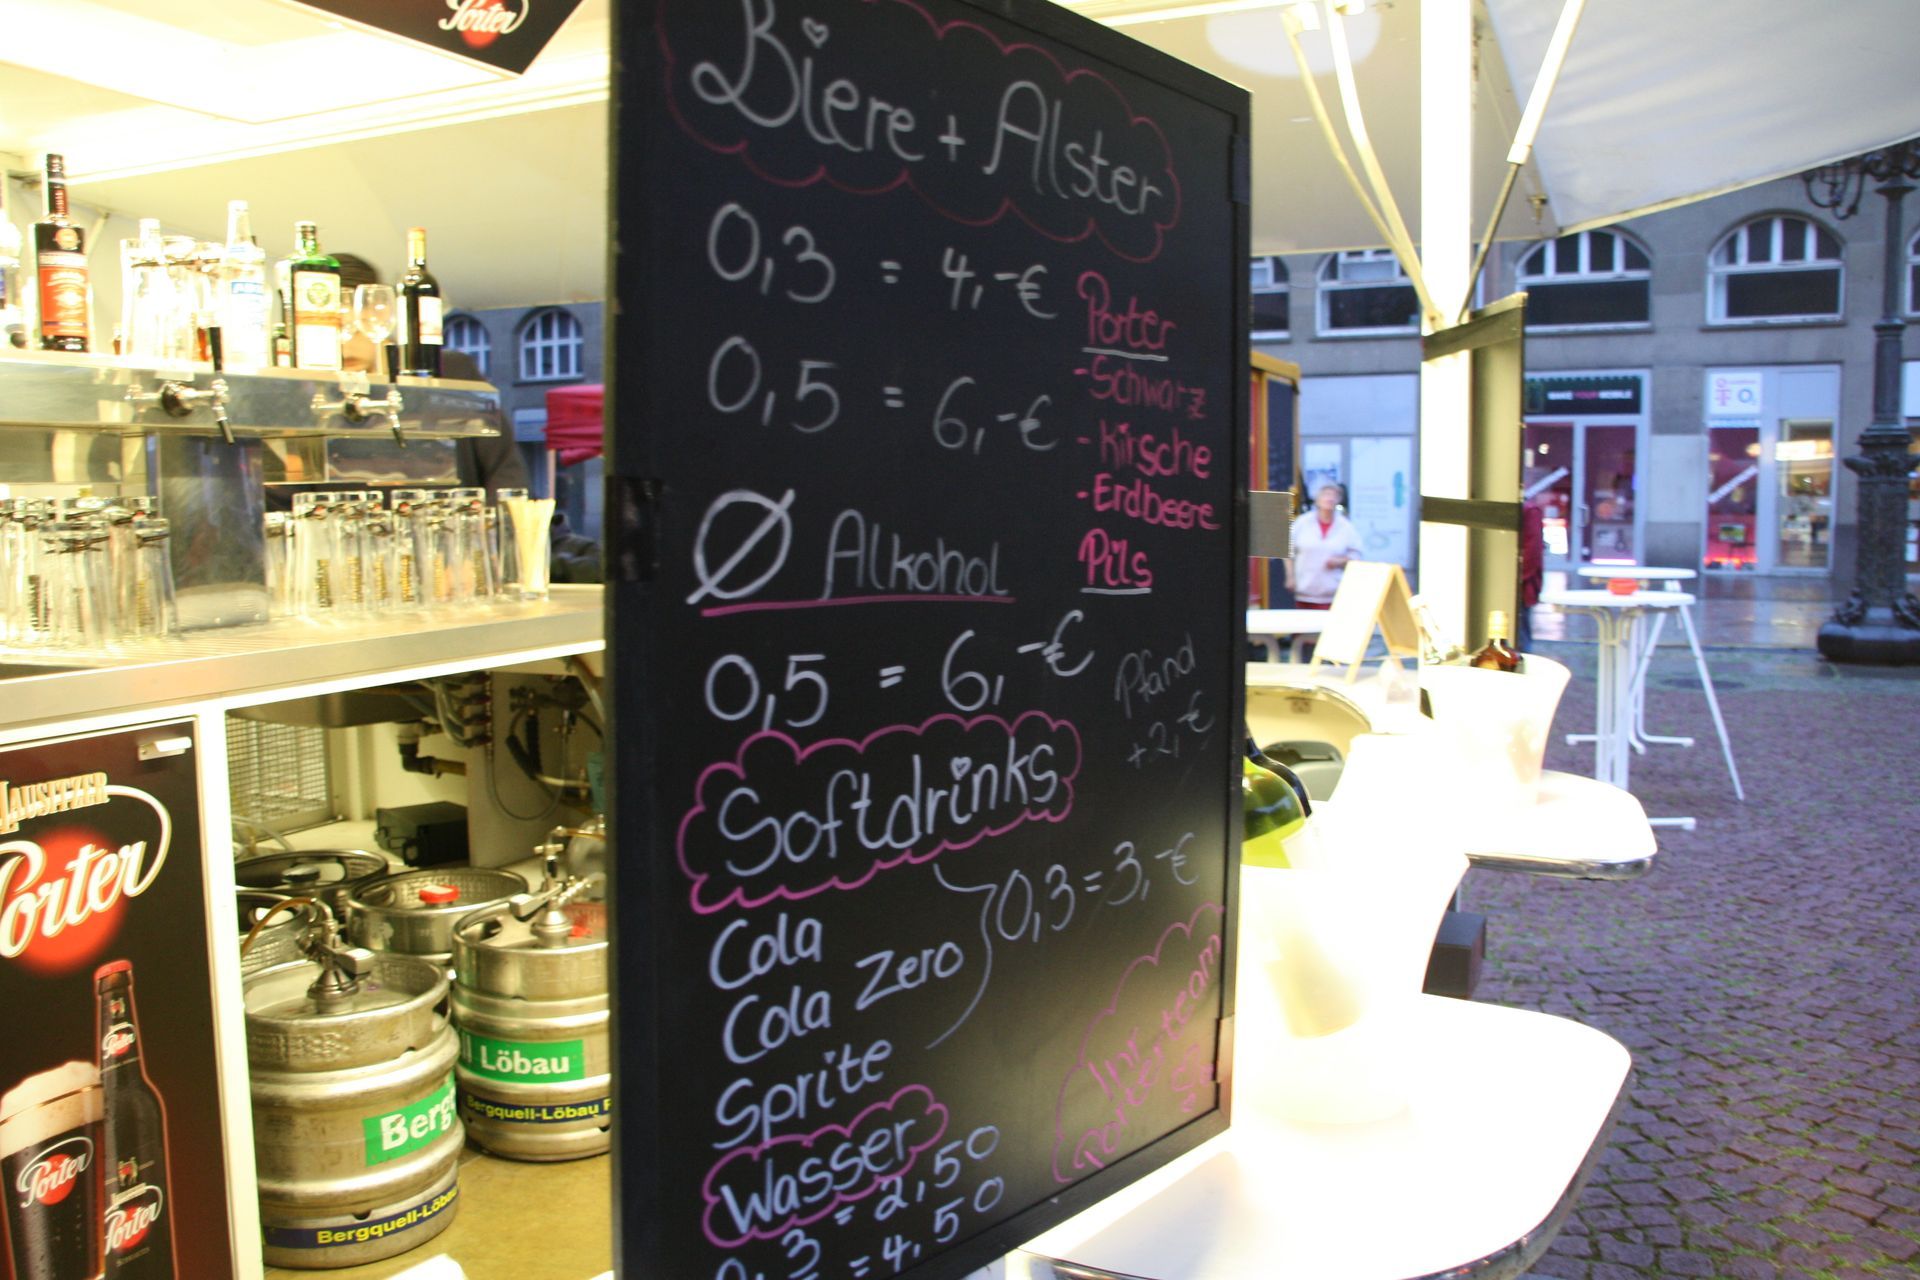 Porter
Biere + Alster
0,3 = 4,-€
0,5 = 6,-€
Porter
- Schwarz
- Kirsche
- Erdbeere
Pils
Ø Alkohol
0,5 = 6,-€
Pfand
+2,-€
Softdrinks
0,3 = 3,-€
Cola
Cola Zero
Sprite
Wasser
0,3 = 2,50
= 4,50
Ihr
Porterteam
LAUSITZER
Porter
Porter
Porter
Porter
Löbau
Bergquell-Löbau
Berg
Bergquell-Löbau
MAKE YOUR MOBILE
T O2